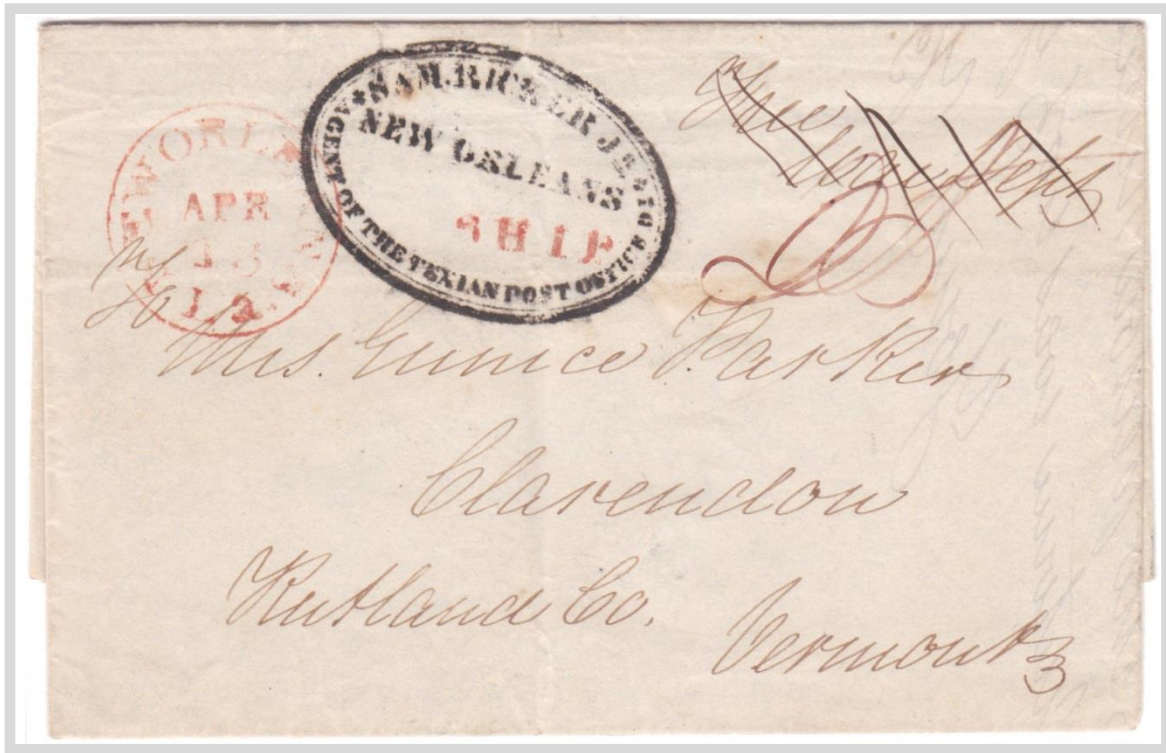 NEW ORLEANS
APR
13
La.
★ SAM. RICKER JR.
NEW ORLEANS
SHIP
AGENT OF THE TEXIAN POST OFFICE D
Free
Mrs. Eunice Parker
Clarendon
Rutland Co.
Vermont